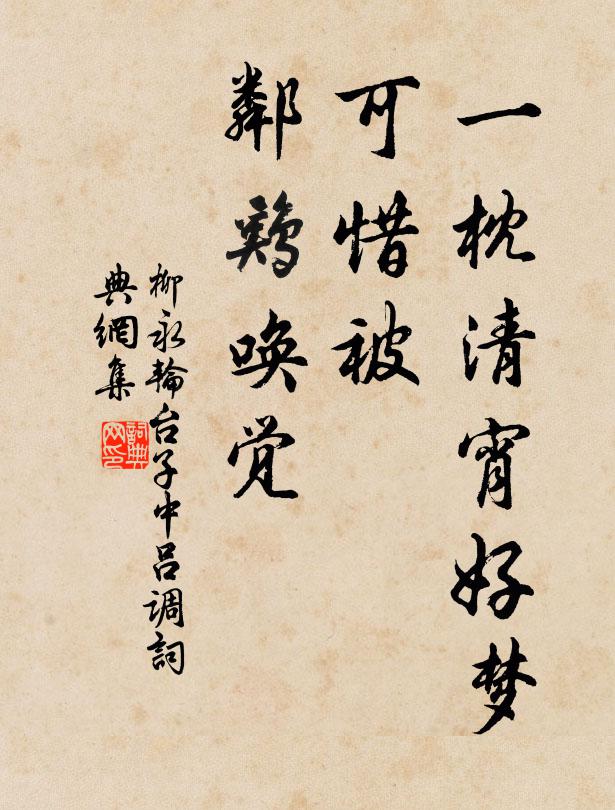 一枕清宵好梦
可惜被
鄰鷄唤觉
柳永輪台子中吕调詞
典網集
詞典网印